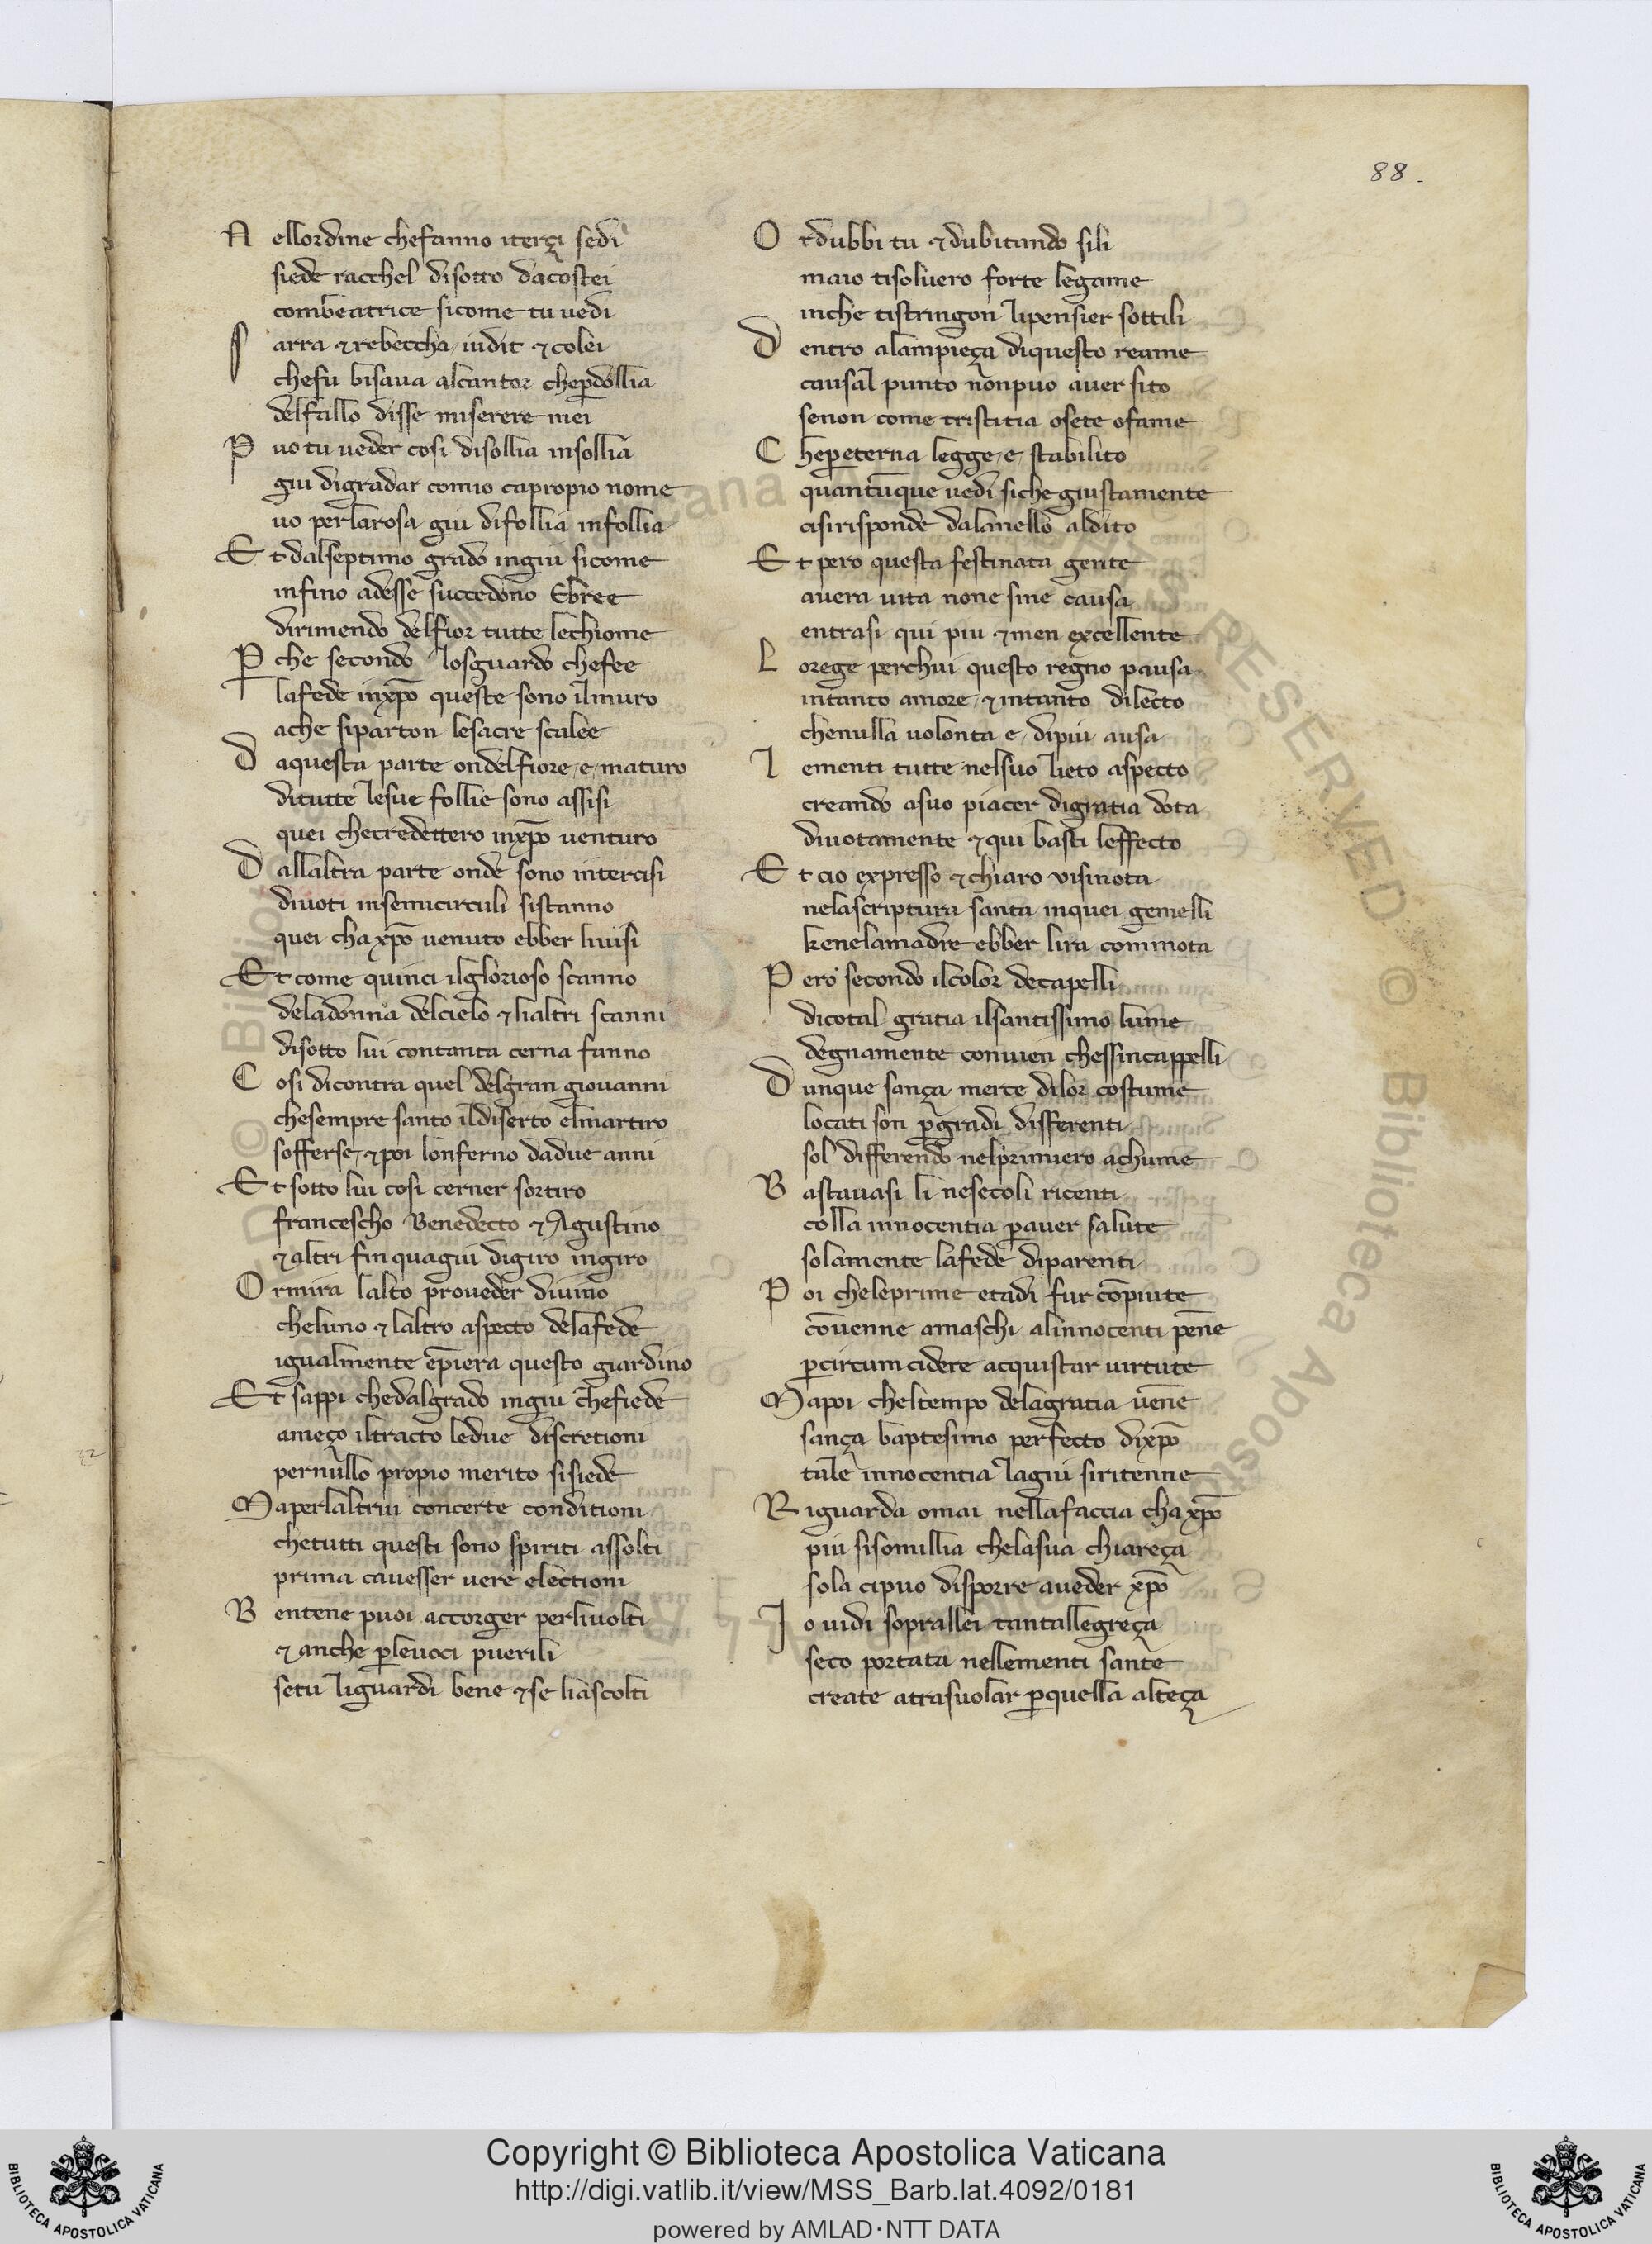 88.
Nellordine chefanno iterçi sedi
siede racchel disotto dacostei
combeatrice sicome tu uedi
Sarra ⁊ rebeccha iudit ⁊ colei
chefu bisaua alcantor cheꝑdollia
delfallo disse miserere mei
Puo tu ueder cosi disollia insollia
giu digradar comio capropio nome
uo perlarosa giu difollia infollia
Et dalseptimo grado ingiu sicome
infino adesse succedono Ebree
dirimendo delfior tutte lechiome
Ꝑche secondo losguardo chefee
lafede inxp̄o queste sono ilmuro
ache siparton lesacre scalee
Daquesta parte ondelfiore e maturo
ditutte lesue follie sono assisi
quei checredettero inxp̄o uenturo
Dallaltra parte onde sono intercisi
diuoti insemicirculi sistanno
quei chaxp̄o uenuto ebber liuisi
Et come quinci ilglorioso scanno
deladonna delcielo ⁊ lialtri scanni
disotto lui contanta cerna fanno
Cosi dicontra quel delgran giouanni
chesempre santo ildiserto elmartiro
sofferse ⁊ poi lonferno dadue anni
Et sotto lui cosi cerner sortiro
francescho Benedecto ⁊ Agustino
⁊ altri fin quagiu digiro ingiro
Ormira lalto proueder diuino
cheluno ⁊ laltro aspecto delafede
igualmente ēpiera questo giardino
Et sappi chedalgrado ingiu chefiede
ameço iltracto ledue discretioni
pernullo propio merito sisiede
Maperlaltrui concerte conditioni
chetutti questi sono spiriti assolti
prima cauesser uere electioni
Bentene puoi accorger perliuolti
⁊ anche ꝑleuoci puerili
setu liguardi bene ⁊ se liascolti
Ordubbi tu ⁊ dubitando sili
maio tisoluero forte legame
inche tistringon lipensier sottili
Dentro alampieça diquesto reame
causal punto nōnpuo auer sito
senon come tristitia osete ofame
Cheꝑeterna legge e stabilito
quantūnque uedi siche giustamente
cisirisponde dalanello aldito
Et pero questa festinata gente
auera uita none sine causa
entrasi qui piu ⁊ men excellente
Lorege perchui questo regno pausa
intanto amore ⁊ intanto dilecto
chenulla uolonta e dipiu ausa
Lementi tutte nelsuo lieto aspecto
creando asuo piacer digratia dota
diuotamente ⁊ qui basti leffecto
Et cio expresso ⁊ chiaro visinota
nelascriptura santa inquei gemelli
kenelamadre ebber lira commota
Pero secondo ilcolor decapelli
dicotal gratia ilsantissimo lume
degnamente conuien chessincappelli
Dunque sança merce dilor costume
locati son ꝑgradi differenti
sol differendo nelprimiero achume
Bastauasi li nesecoli ricenti
colla innocentia ꝑauer salute
solamente lafede diparenti
Poi cheleprime etadi fur cōpiute
cōuenne amaschi alinnocenti pēne
ꝑcircumcidere acquistar uirtute
Mapoi cheltempo delagratia uēne
sança baptesimo perfecto dixp̄o
tale innocentia lagiu siritenne
Riguarda omai nellafaccia chaxp̄o
piu sisomillia chelasua chiareça
sola cipuo disporre aueder xp̄o
Io uidi soprallei tantallegreça
seco portata nellementi sante
create atrasuolar ꝑquella alteça
© Biblioteca Apostolica Vaticana
RESERVED © Biblioteca Apost
Copyright © Biblioteca Apostolica Vaticana
http://digi.vatlib.it/view/MSS_Barb.lat.4092/0181
powered by AMLAD·NTT DATA
BIBLIOTECA APOSTOLICA VATICANA
BIBLIOTECA APOSTOLICA VATICANA